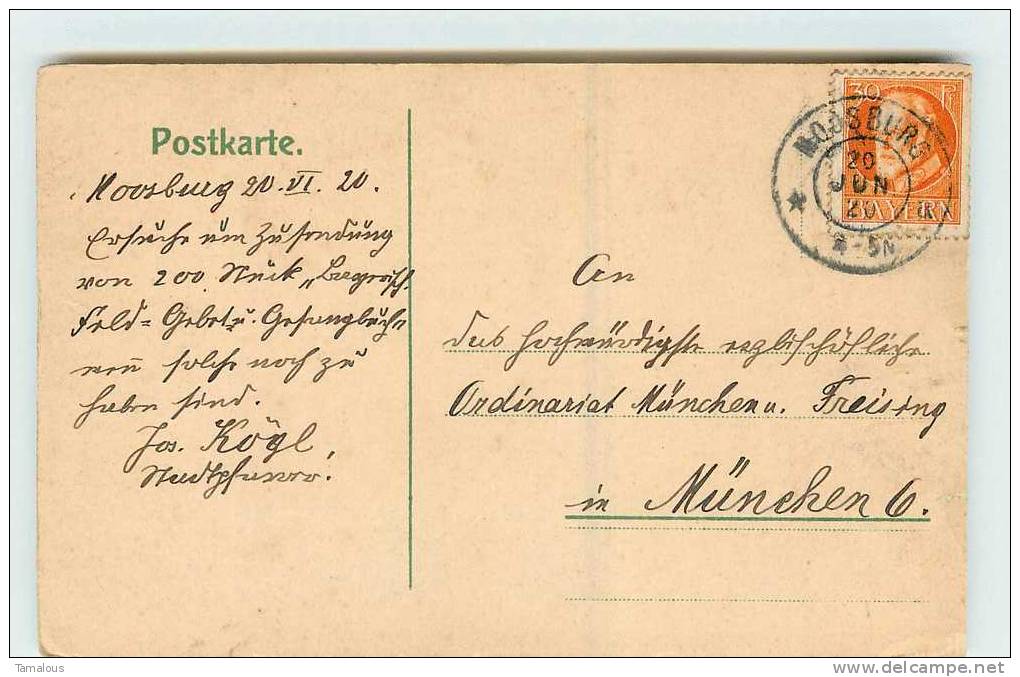 Postkarte.
Moosburg 20.VI.20.
Ersuche um Zusendung
von 200 Stück „Bayrisch.
Feld= Gebet u. Gesangbuch"
wenn solche noch zu
haben sind.
Jos. Kögl,
Stadtpfarrer.
30 Pf
MOOSBURG
20
JUN
20
BAYERN
4-5N
An
das hochwürdigste erzbischöfliche
Ordinariat München u. Freising
in München 6.
Tamalous
delcampe.net